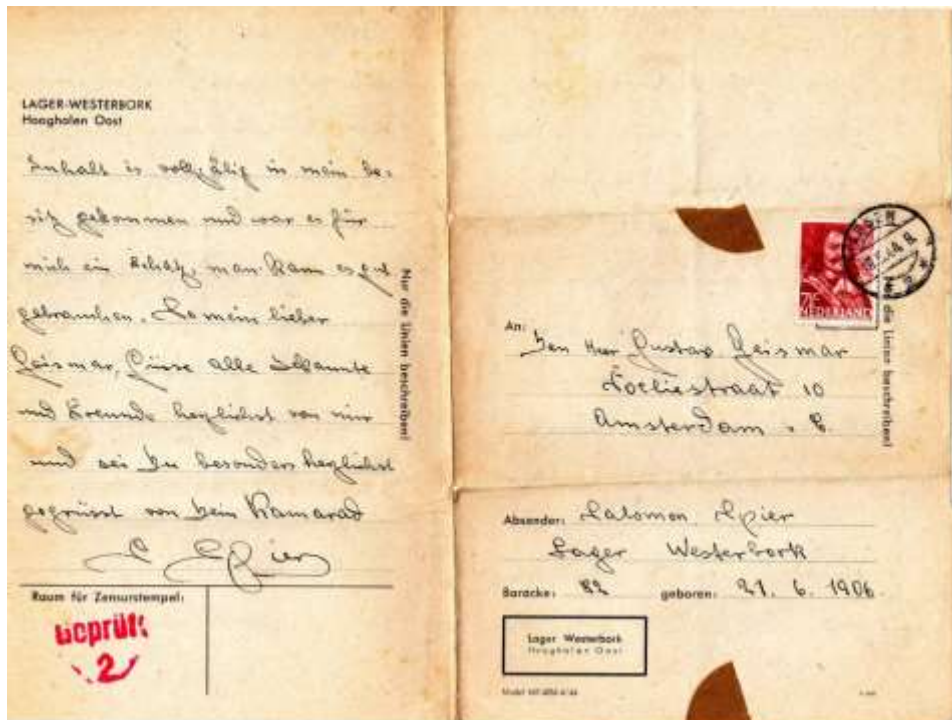 LAGER-WESTERBORK
Hooghalen Oost
Inhalt is vollzählig in mein be-
sitz gekommen und war es für
mich ein Schatz, man kann es gut
gebrauchen. So mein lieber
Geismar, Grüsse alle Bekannte
und Freunde herzlichst von mir
und sei Du besonders herzlichst
gegrüsst von Dein Kamarad
S Spier
Nur die Linien beschreiben!
Raum für Zensurstempel:
Geprüft
2
NEDERLAND
die Linien beschreiben!
An: Den Herr Gustav Geismar
10
Amsterdam
Absender: Salomon Spier
Lager Westerbork
Baracke: 82 geboren: 21. 6. 1906.
Lager Westerbork
Hooghalen Oost